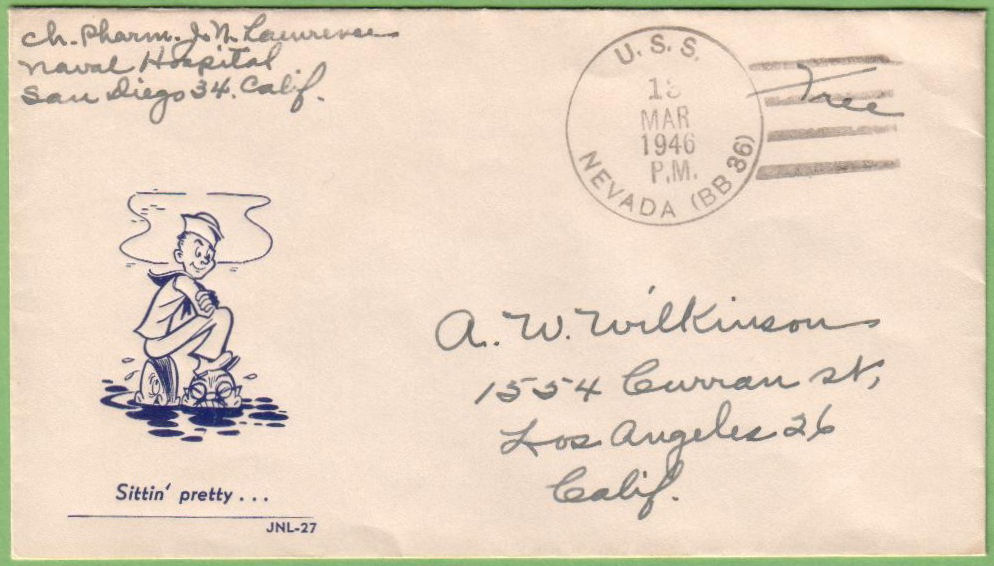 Ch. Pharm. J. N. Lawrence
Naval Hospital
San Diego 34. Calif.
U.S.S.
MAR
1946
P.M.
NEVADA (BB 36)
Free
A. W. Wilkinson
1554 Curran St,
Los Angeles 26
Calif.
Sittin' pretty...
JNL-27